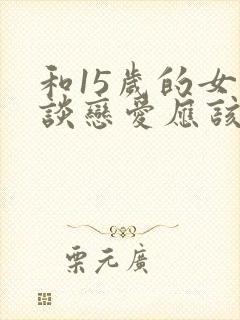 和15歲的女
談戀愛應該
栗元廣